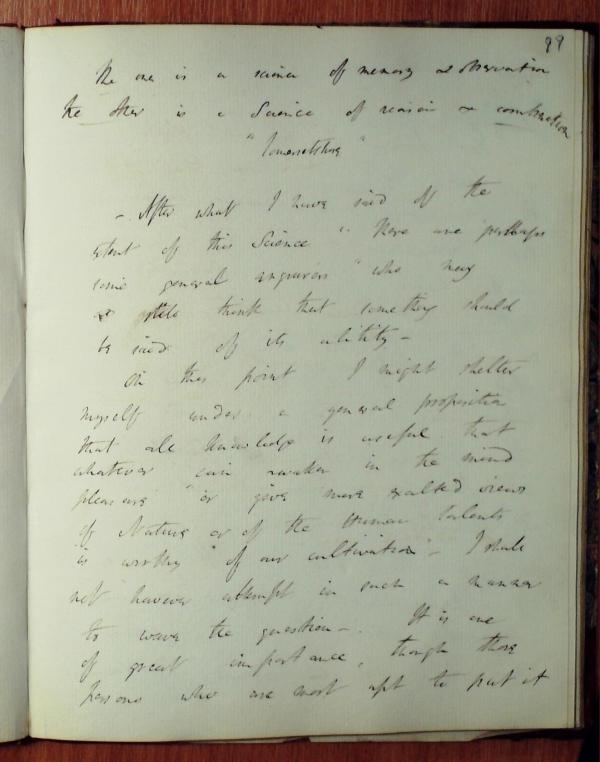 99
The one is a science of memory & observation
the other is a Science of reason & combination
"Somersetshire"
- After what I have said of the
extent of this Science " there are perhaps
some general enquirers " who may
think that something should
be said of its utility -
On this point I might shelter
myself under a general proposition
that all knowledge is useful that
whatever can awaken in the mind
pleasure " or give more exalted views
of Nature or of the human talents
is worthy " of our cultivation" - I shall
not however attempt in such a manner
to wave the question -. It is one
of great importance, though those
persons who are most apt to put it